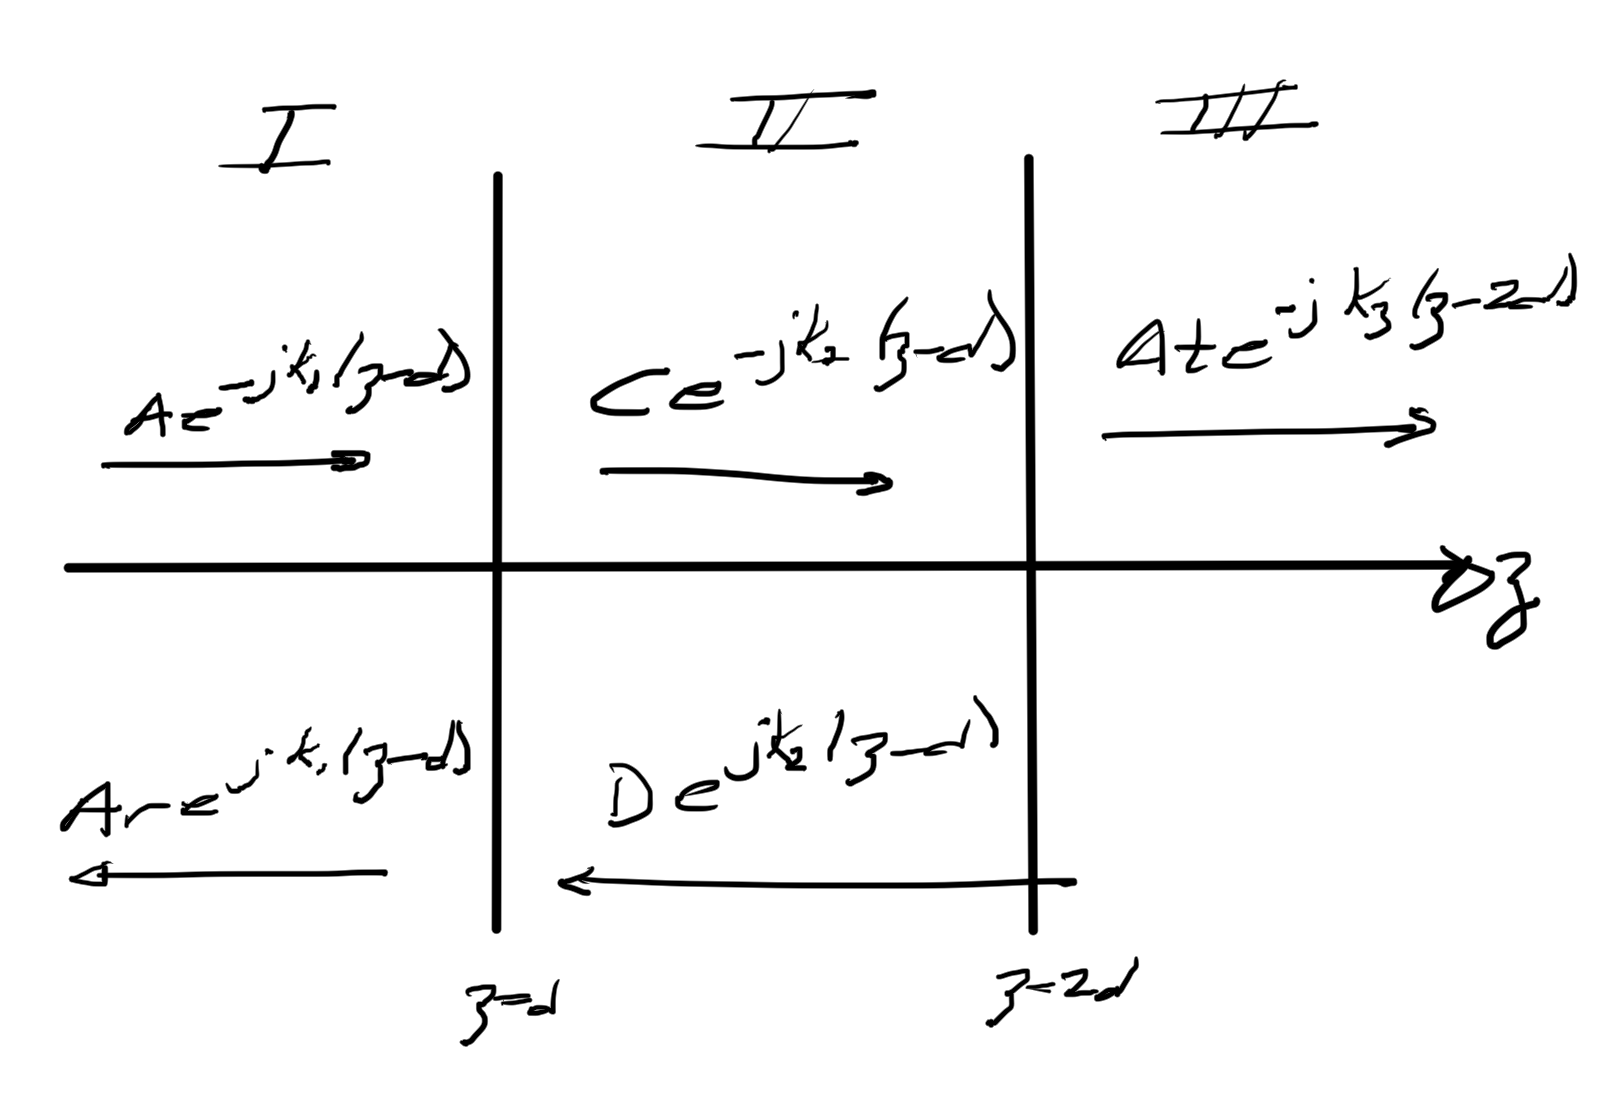 I II III
Ae^{-jk_1(z-d)} Ce^{-jk_2(z-d)} Ate^{-jk_3(z-2d)}
z
Are^{jk_1(z-d)} De^{jk_2(z-d)}
z=d z=2d